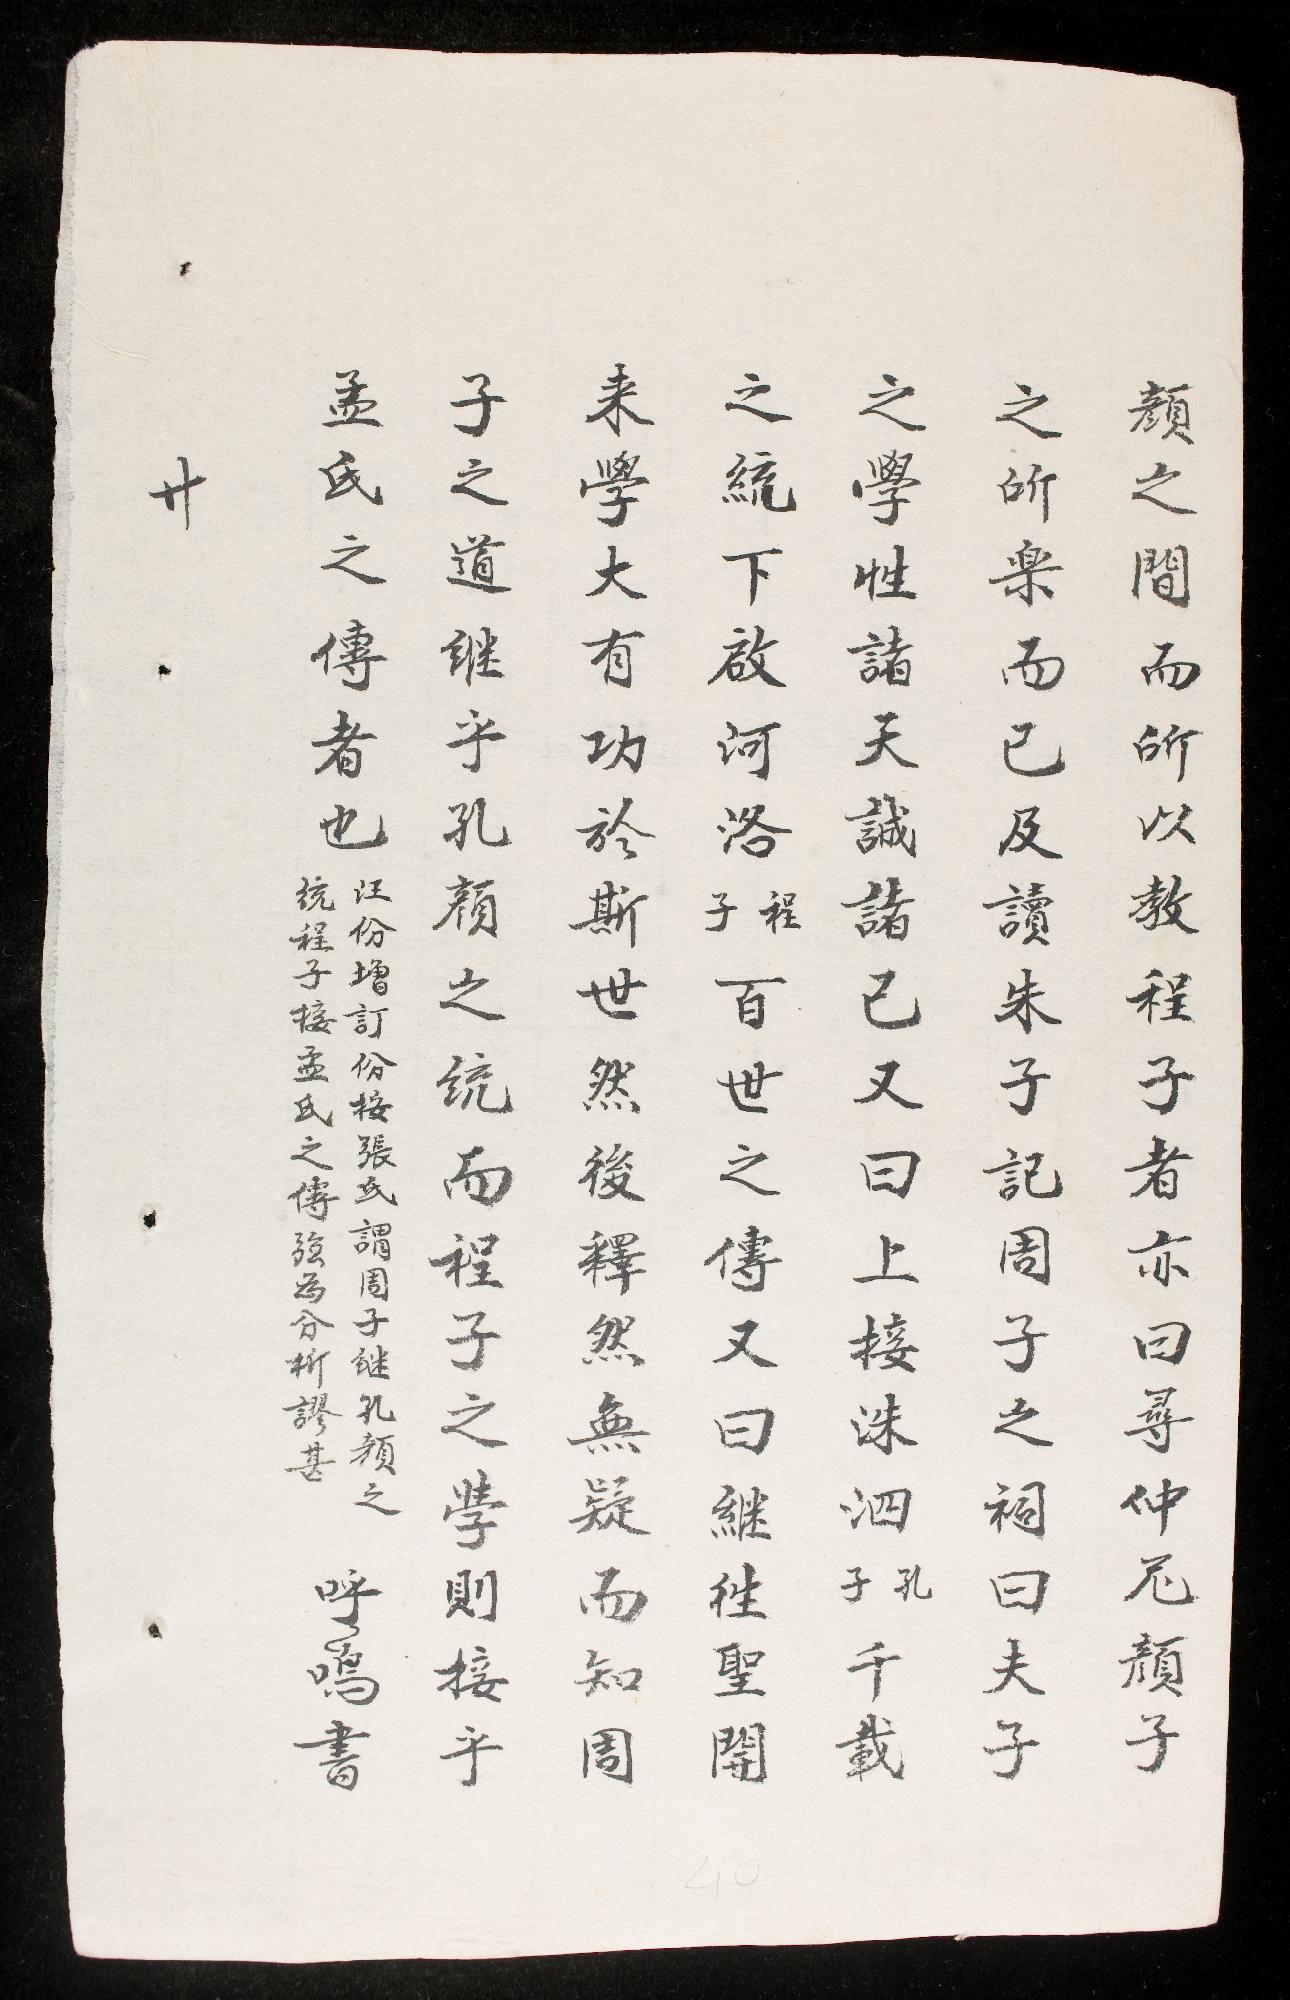 顏之間而所以教程子者亦曰尋仲尼顏子
之所楽而已及讀朱子記周子之祠曰夫子
之學性諸天誠諸己又曰上接洙泗孔子千載
之統下啟河洛程子百世之傳又曰継徃聖開
来學大有功於斯世然後釋然無疑而知周
子之道継乎孔顏之統而程子之學則接乎
孟氏之傳者也汪份增訂份按張氏謂周子継孔顏之
統程子接孟氏之傳強為分析謬甚
呼鳴書
廿
40